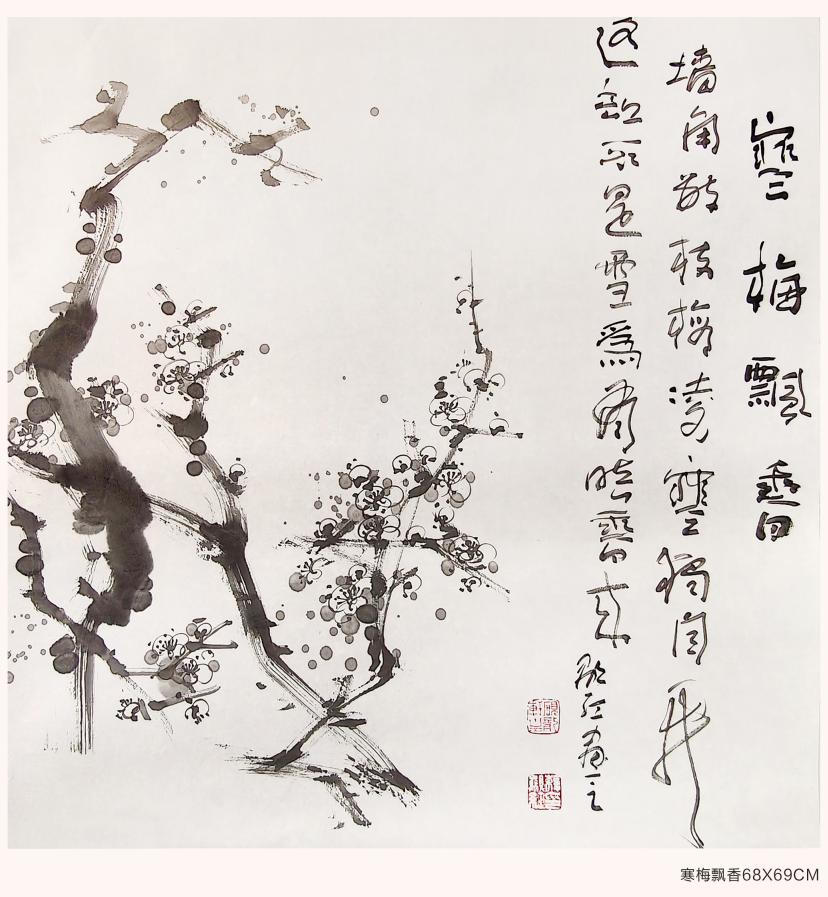 寒梅飄香
墙角數枝梅凌寒獨自开
遥知不是雪為有暗香来
寒梅飘香68X69CM